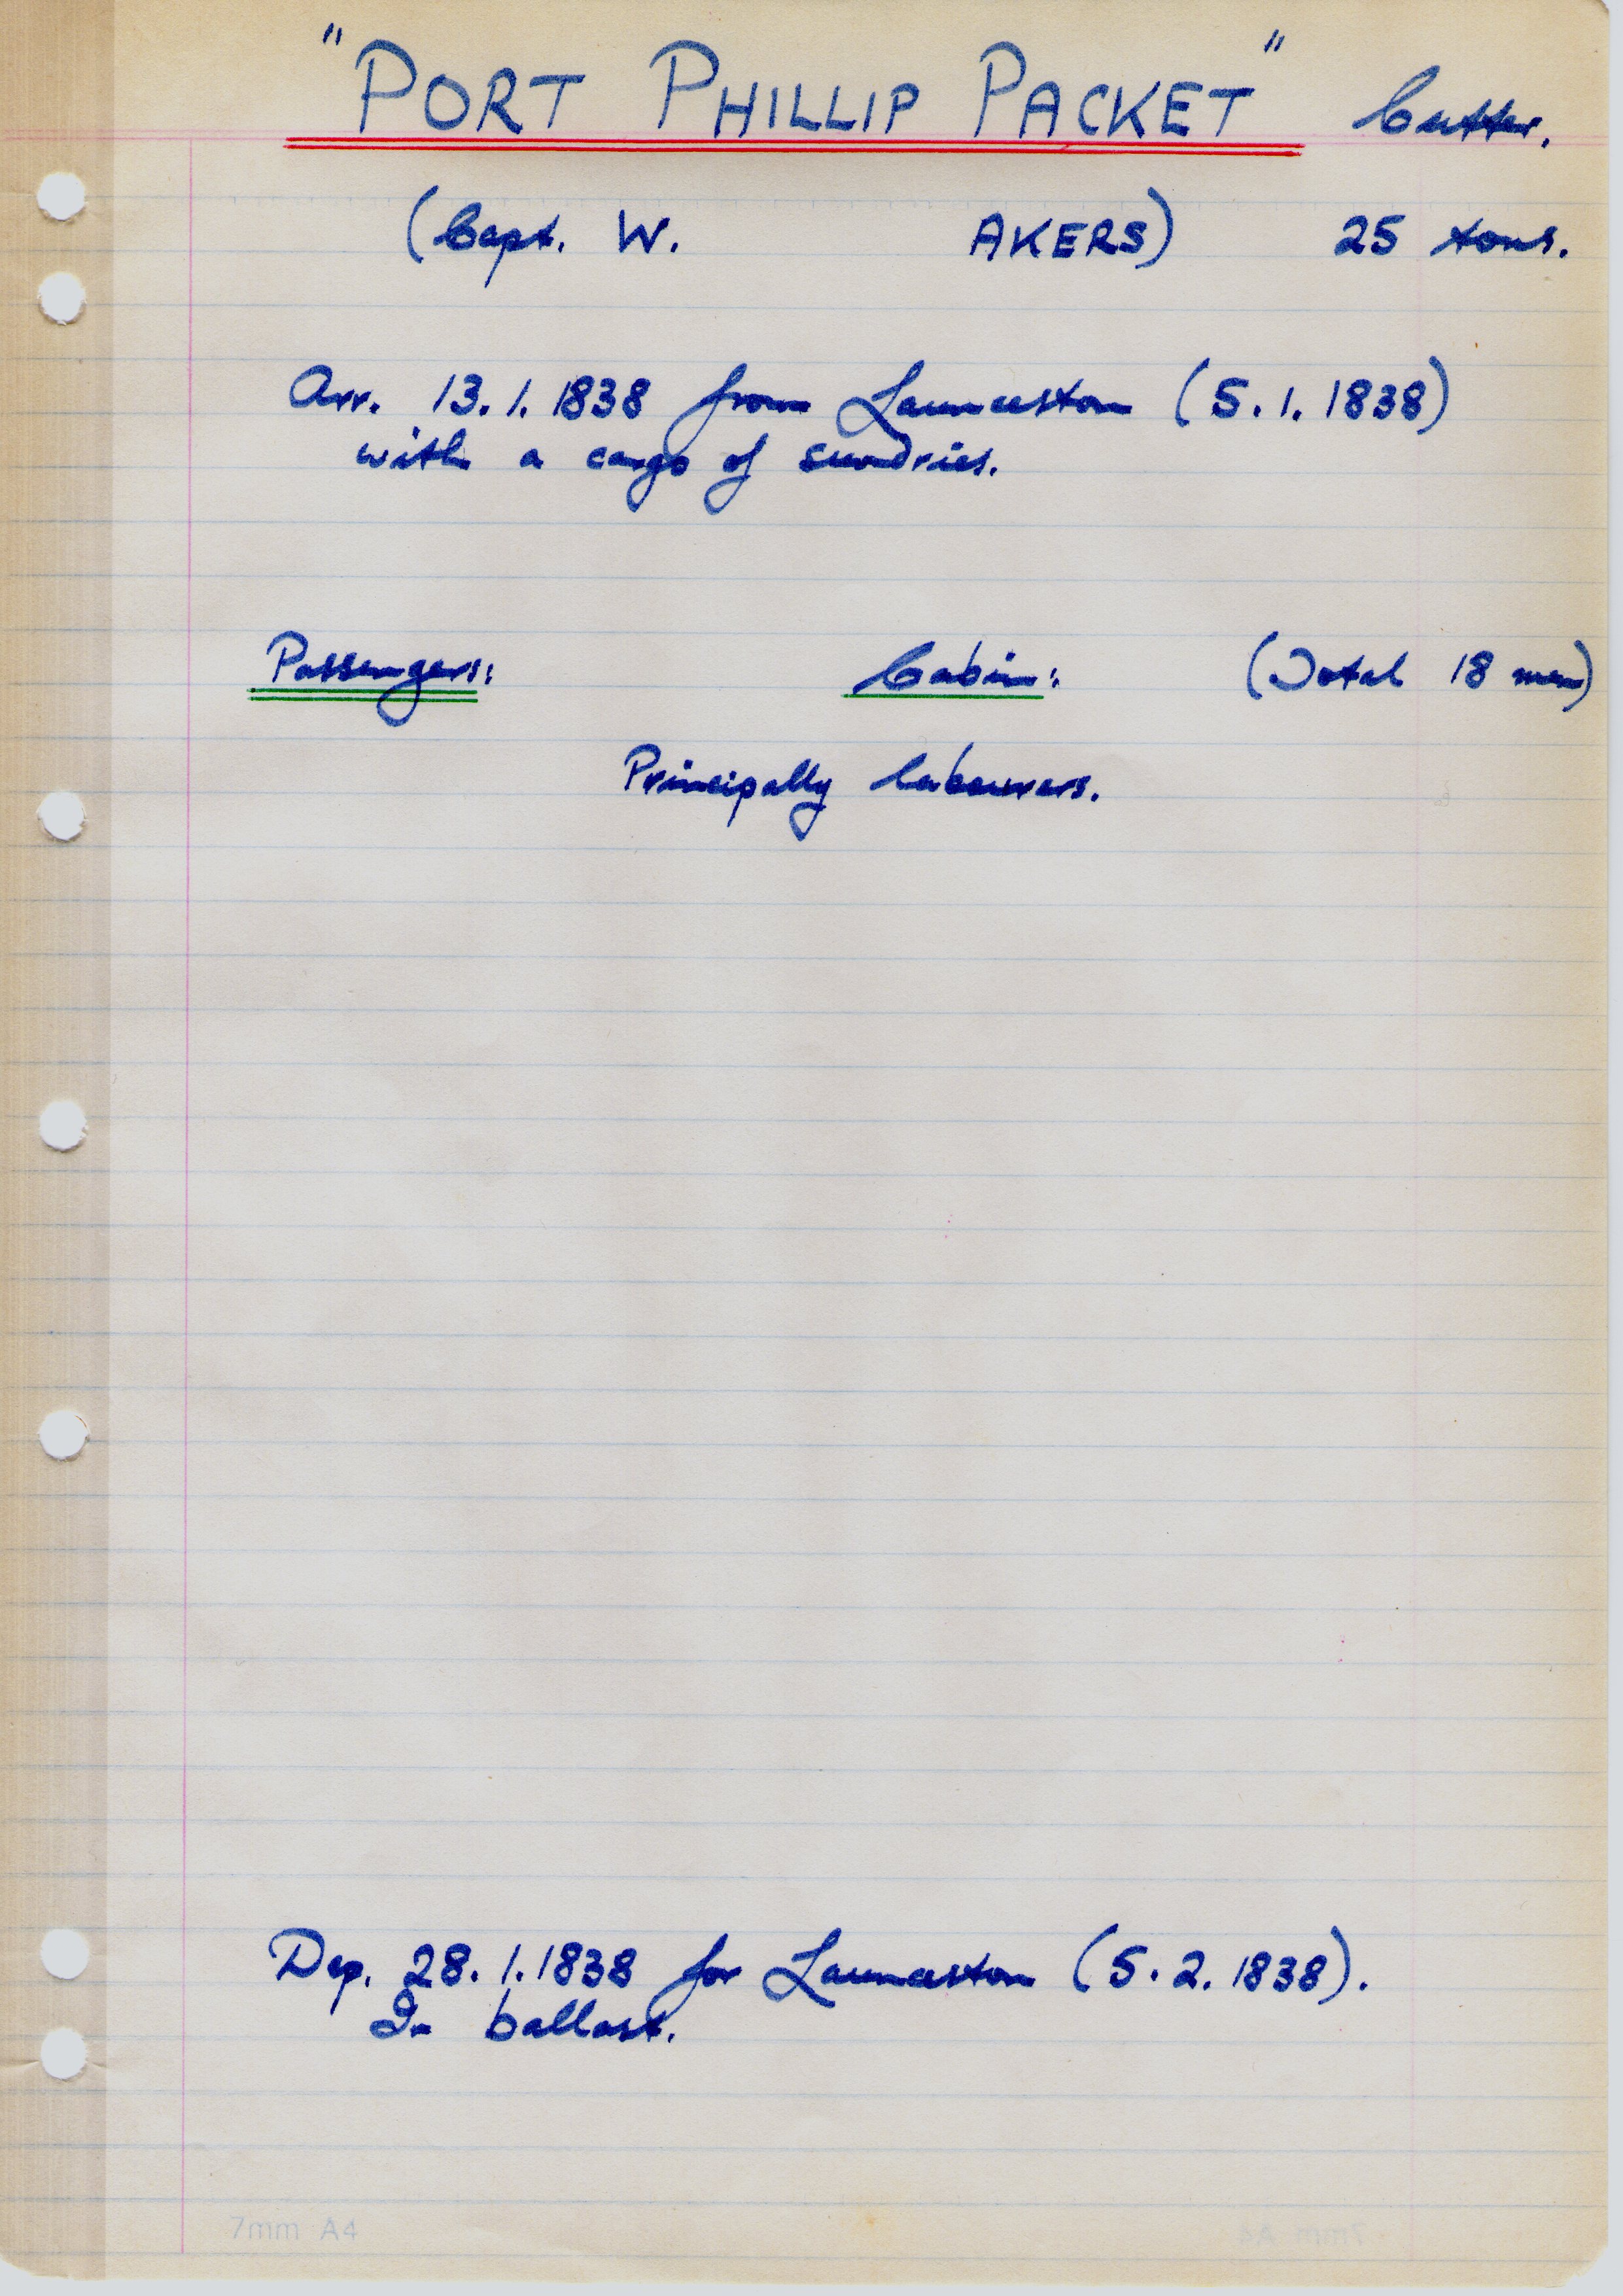 "PORT PHILLIP PACKET" Cutter.
(Capt. W. AKERS) 25 tons.
Arr. 13.1.1838 from Launceston (5.1.1838)
with a cargo of sundries.
Passengers: Cabin: (Total 18 men)
Principally labourers.
Dep. 28.1.1838 for Launceston (5.2.1838).
In ballast.
7mm A4